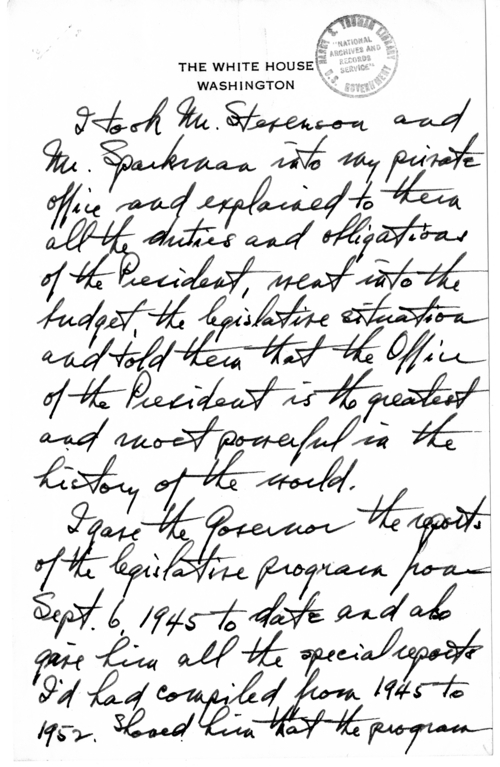 THE WHITE HOUSE
WASHINGTON
HARRY S. TRUMAN LIBRARY
"NATIONAL
ARCHIVES AND
RECORDS
SERVICE"
U.S. GOVERNMENT
I took Mr. Stevenson and
Mr. Sparkman into my private
office and explained to them
all the duties and obligations
of the President, went into the
budget, the legislative situation
and told them that the Office
of the President is the greatest
and most powerful in the
history of the world.
I gave the Governor the reports
of the legislative program from
Sept. 6, 1945 to date and also
gave him all the special reports
I'd had compiled from 1945 to
1952. Showed him that the program